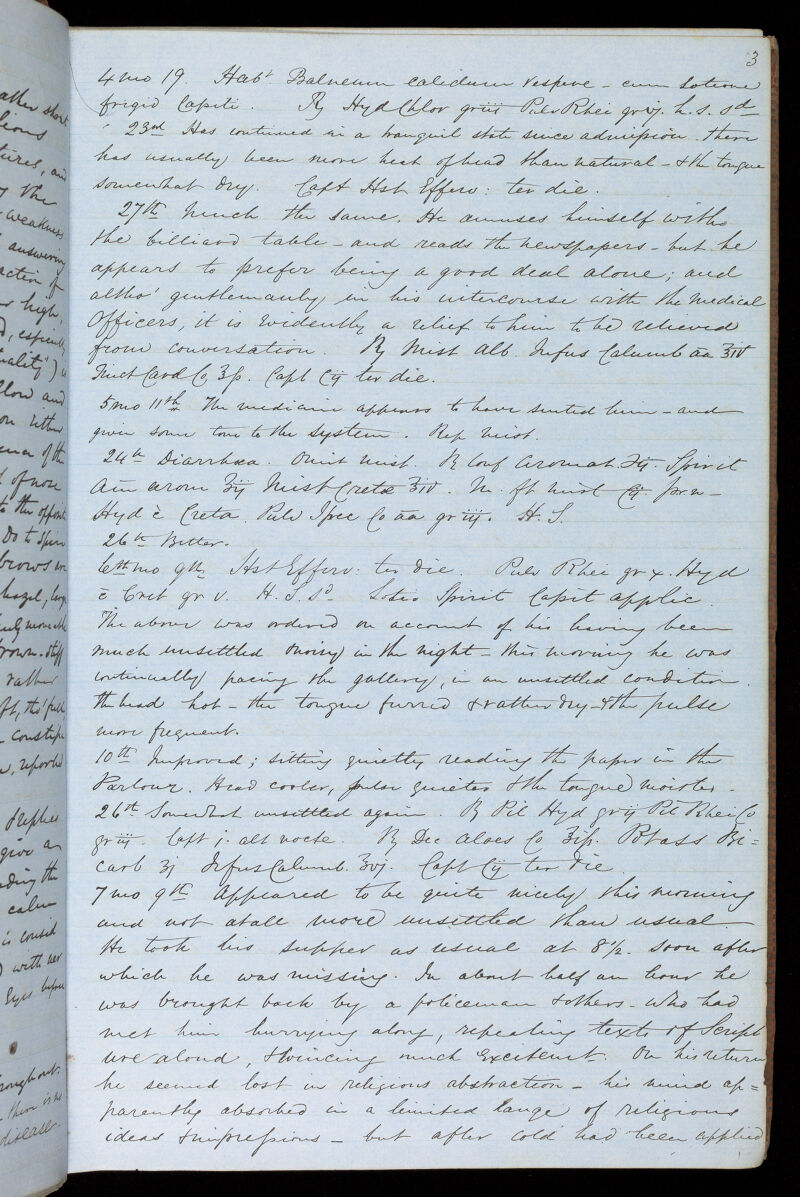 ather short
lions
tures, and
y the
weakness
answering
action of
r high,
d, especially
uality") is
llow and
on either
of the
of nose
to the opposite
Do to Spine
brows
hazel, large
rown. stiff
rather
ft, tho' full
constip
w, reported
give an
ading the
calm
is consid
with her
Eyes before
roughout.
there is no
disease.
3
4 mo 19. Habt Balneum calidum vespere – cum Lotione
frigid Capiti. Rx Hyd Chlor gr iii Pulv Rhei gr vj. h. s. sd
23rd Has continued in a tranquil state since admission. there
has usually been more heat of head than natural – & the tongue
somewhat dry. Capt Hst Efferv: ter die.
27th Much the same. He amuses himself with
the billiard table – and reads the newspapers – but he
appears to prefer being a good deal alone; and
altho' gentlemanly in his intercourse with the Medical
Officers, it is evidently a relief to him to be relieved
from conversation. Rx Mist Alb. Infus Calumb āā ʒiv
Tinct Card Co ʒß. Capt Cij ter die.
5 mo 11th The medicine appears to have suited him – and
given some tone to the system. Rep mist.
24th Diarrhœa. Omit mist. Rx Conf Aromat ʒij. Spirit
Am arom ʒij Mist Cretæ ʒiv. M. ft mist Cij. p.r.n –
Hyd c̄ Creta. Pulv Ipec Co āā gr iij. H. S.
26th Better.
6th mo 9th. Hst Efferv: ter die. Pulv Rhei gr x. Hyd
c̄ Cret gr v. H. S. sd. Lotio Spirit Capit applic.
The above was ordered on account of his having been
much unsettled & noisy in the night – this morning he was
continually pacing the gallery, in an unsettled condition.
the head hot – the tongue furred & rather dry – & the pulse
more frequent.
10th Improved; sitting quietly reading the paper in the
Parlour. Head cooler, pulse quieter & the tongue moister –
26th Somewhat unsettled again. Rx Pil Hyd gr ij Pil Rhei Co
gr iij. Capt j. alt nocte. Rx Dec Aloes Co ʒiß. Potass Bi=
carb ʒj Infus Calumb. ʒvj. Capt Cij ter die.
7 mo 9th Appeared to be quite nicely this morning
and not at all more unsettled than usual.
He took his supper as usual at 8½. soon after
which he was missing. In about half an hour he
was brought back by a policeman & others – who had
met him hurrying along, repeating texts of Script
ure aloud, & evincing much excitemt. On his return
he seemed lost in religious abstraction – his mind ap=
parently absorbed in a limited range of religious
ideas & impressions – but after cold had been applied